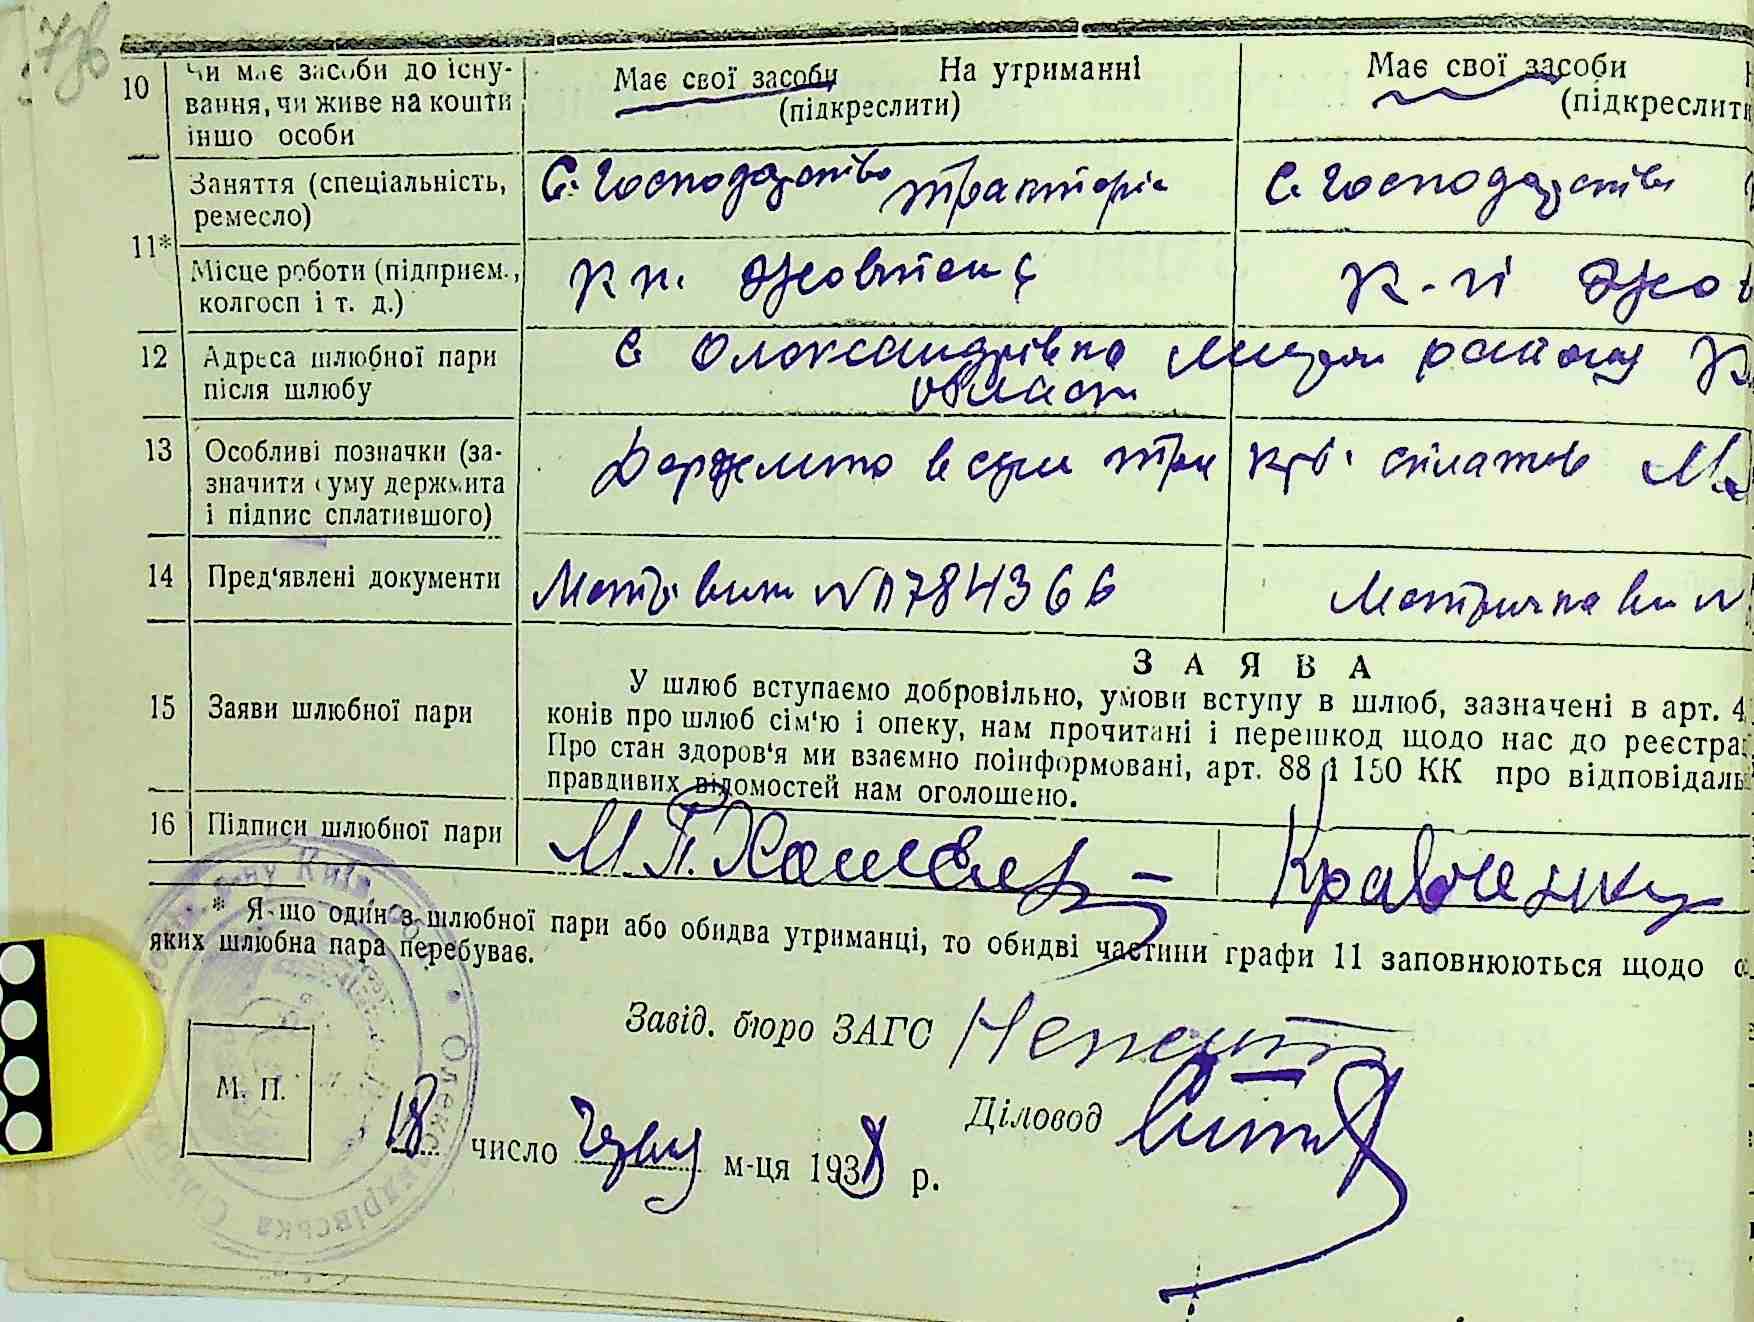 10 Чи має засоби до існу- Має свої засоби На утриманні Має свої засоби
вання, чи живе на кошти (підкреслити) (підкреслити
іншо особи
Заняття (спеціальність, С. Господарство тракторіс С Господарство
ремесло)
11*
Місце роботи (підприєм., к-п. Жовтень К-п Жов
колгосп і т. д.)
12 Адреса шлюбної пари С Олександрівка району К
після шлюбу області
13 Особливі позначки (за- Держмито в сумі три крб. сплатив М.
значити суму держмита
і підпис сплатившого)
14 Пред'явлені документи Метр. вип № 784366 Метрична ви №
ЗАЯВА
У шлюб вступаємо добровільно, умови вступу в шлюб, зазначені в арт. 4
15 Заяви шлюбної пари конів про шлюб сім'ю і опеку, нам прочитані і перешкод щодо нас до реєстра
Про стан здоров'я ми взаємно поінформовані, арт. 88 і 150 КК про відповідаль
правдивих відомостей нам оголошено.
16 Підписи шлюбної пари М.П. Кравченку
* Я-що один з шлюбної пари або обидва утриманці, то обидві частини графи 11 заповнюються щодо о
яких шлюбна пара перебуває.
Завід. бюро ЗАГС
М. П.
Діловод
18 число Червня м-ця 1938 р.